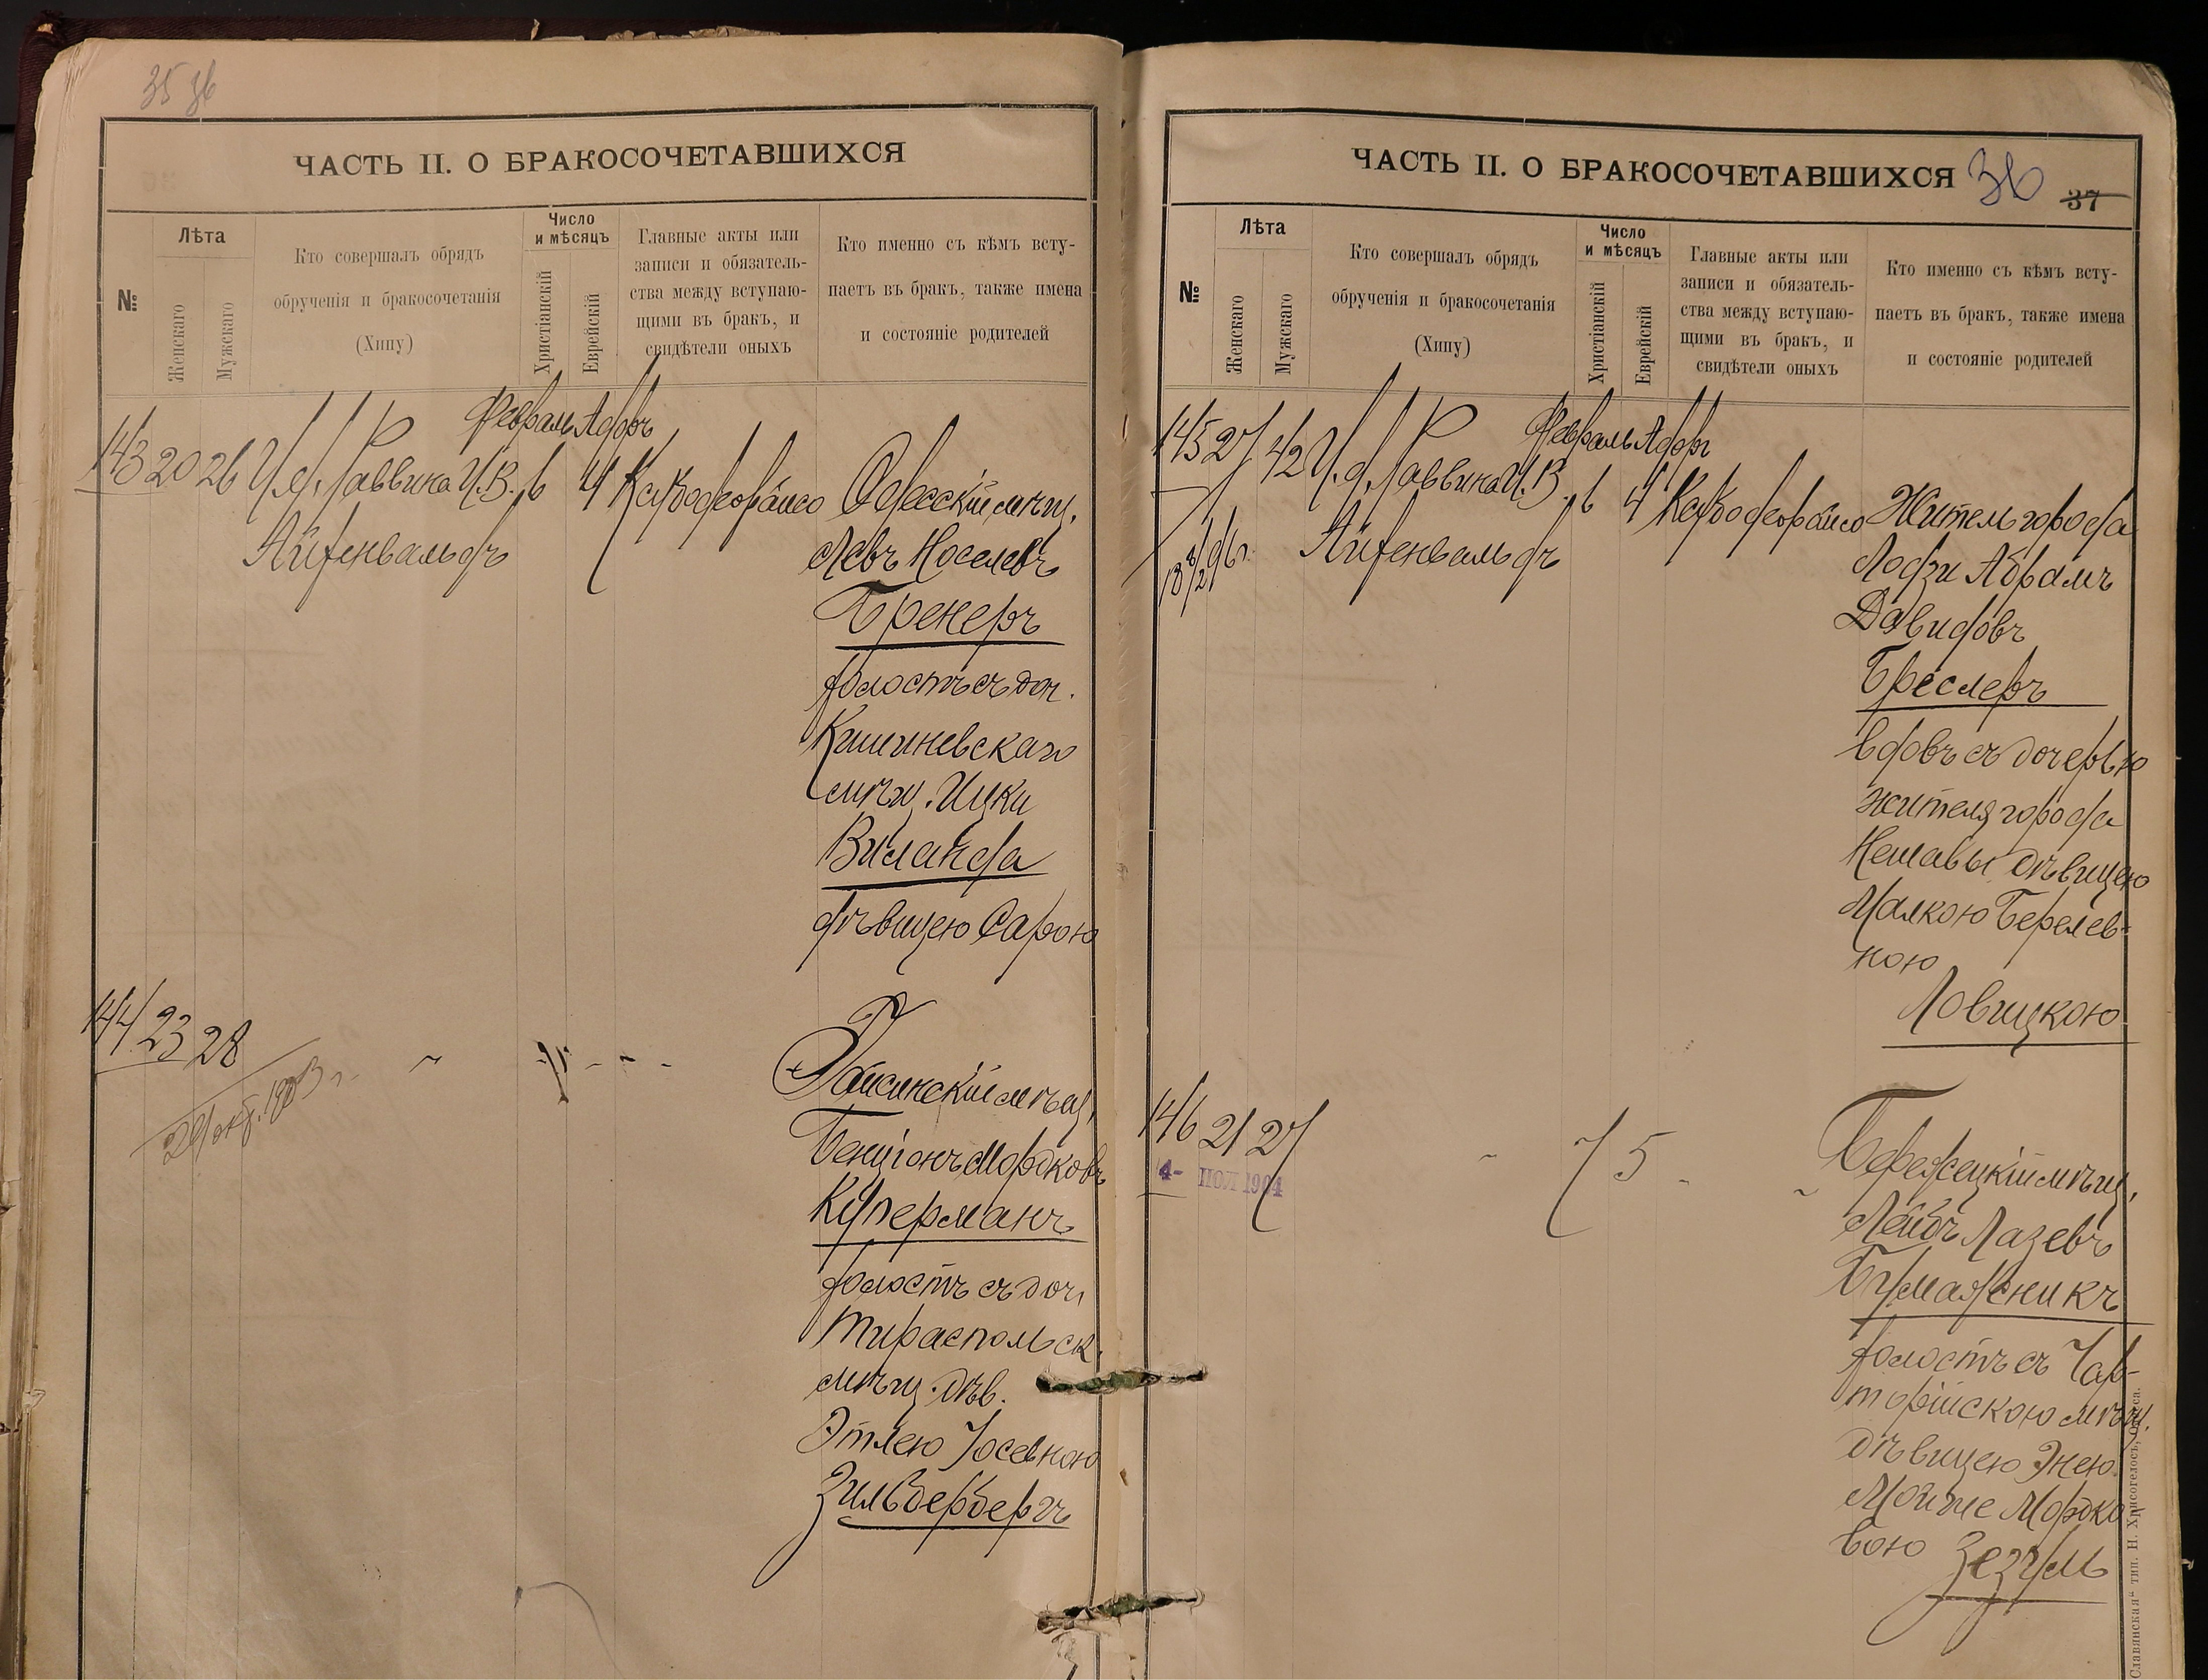 35 36
ЧАСТЬ II. О БРАКОСОЧЕТАВШИХСЯ
№
Лѣта
Женскаго
Мужскаго
Кто совершалъ обрядъ
обрученія и бракосочетанія
(Хипу)
Число
и мѣсяцъ
Христіанскій
Еврейскій
Главные акты или
записи и обязатель-
ства между вступаю-
щими въ бракъ, и
свидѣтели оныхъ
Кто именно съ кѣмъ всту-
паетъ въ бракъ, также имена
и состояніе родителей
Февраль Адоръ
143 20 26 И. д. Раввина И. В. 6 4
Айзенвальдъ
Одесскій мѣщ.
Левъ Іоселевъ
Бренеръ
холостъ съ доч.
Кишиневскаго
мѣщ. Ицки
Виланда
дѣвицею Сарою
144 23 28 " 7 - - -
29 окт. 1903 г.
Гайсинскій мѣщ.
Бенціонъ Мордковъ
Куперманъ
холостъ съ доч.
Тираспольск.
мѣщ. дѣв.
Этлею Іосевною
Зильбербергъ
ЧАСТЬ II. О БРАКОСОЧЕТАВШИХСЯ
36
37
№
Лѣта
Женскаго
Мужскаго
Кто совершалъ обрядъ
обрученія и бракосочетанія
(Хипу)
Число
и мѣсяцъ
Христіанскій
Еврейскій
Главные акты или
записи и обязатель-
ства между вступаю-
щими въ бракъ, и
свидѣтели оныхъ
Кто именно съ кѣмъ всту-
паетъ въ бракъ, также имена
и состояніе родителей
Февраль Адоръ
145 27 42 И. д. Раввина И. В. 6 4
Айзенвальдъ
Житель города
Лодзи Абрамъ
Давидовъ
Бреслеръ
вдовъ съ дочерью
жителя города
Нешавы дѣвицею
Малкою Берелев-
ною
Ловицкою
146 21 27 " 7 5 - "
4- ІЮЛ 1904
Бережецкій мѣщ.
Лейбъ Лазевъ
Бумажникъ
холостъ съ Чар-
торійскою мѣщ.
дѣвицею Энею
Мордко
вою Зезуль
Славянская" тип. Н. Хрисогелосъ, Одесса.